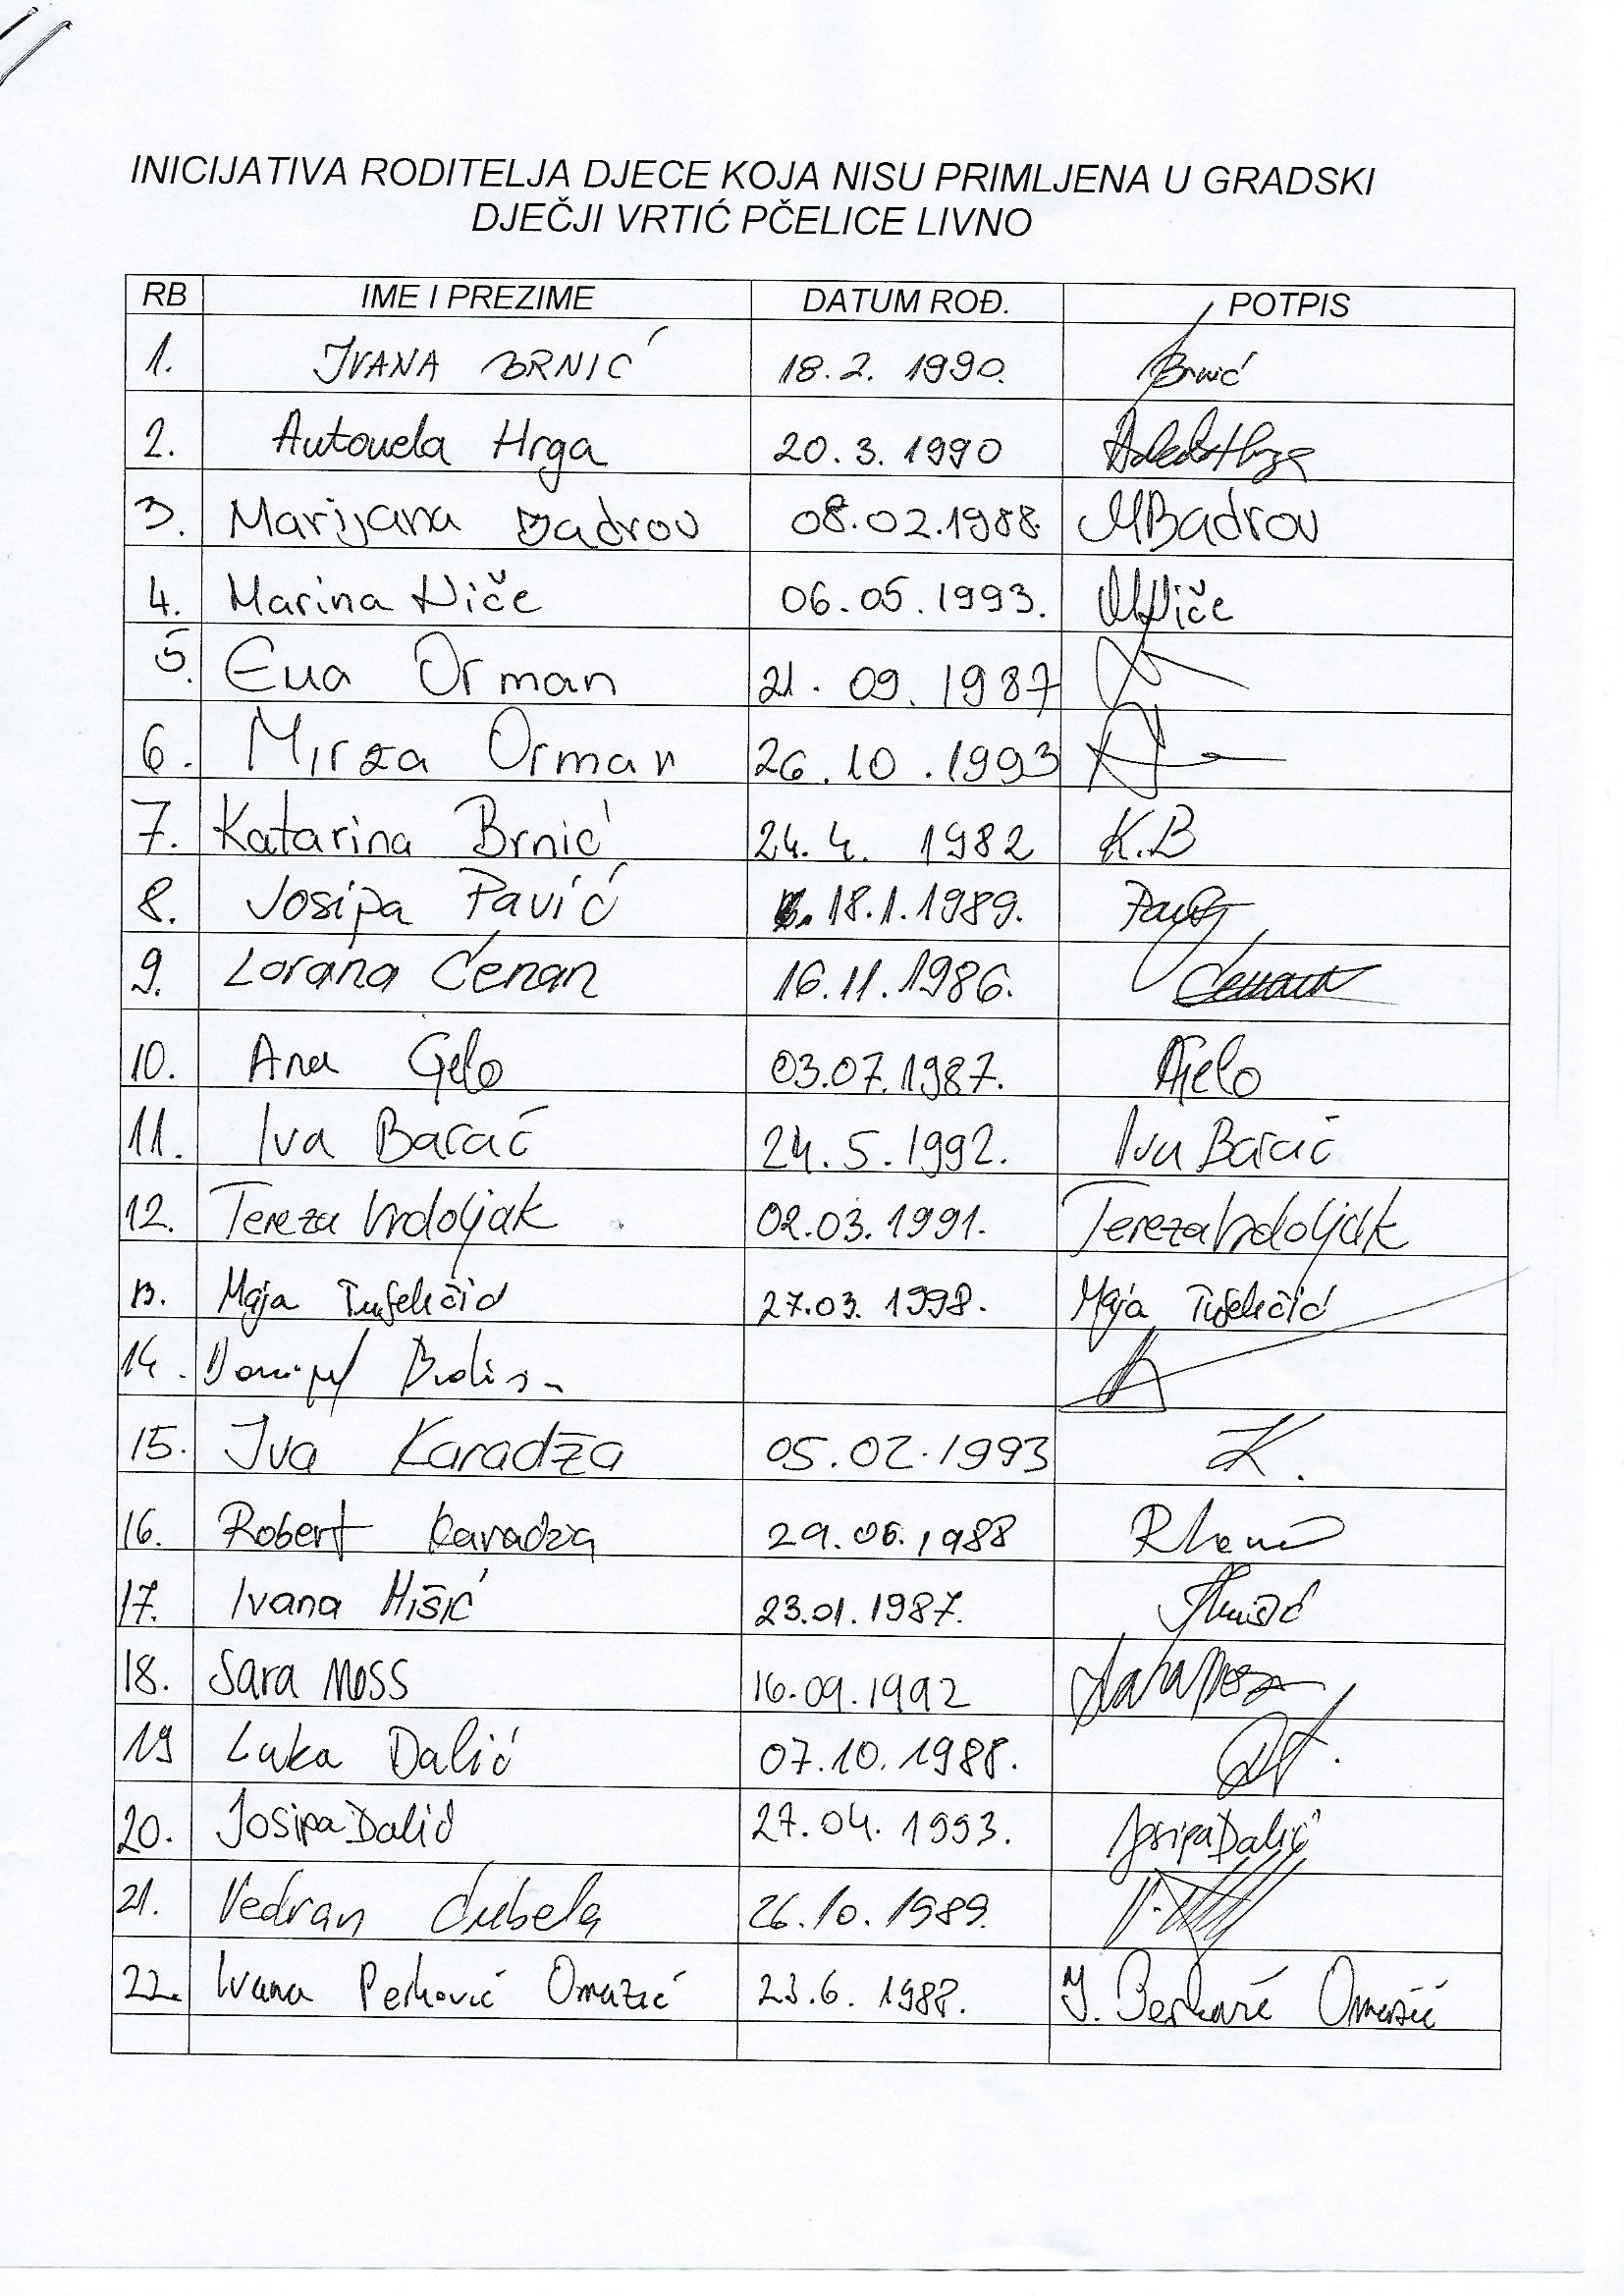 INICIJATIVA RODITELJA DJECE KOJA NISU PRIMLJENA U GRADSKI
DJEČJI VRTIĆ PČELICE LIVNO
RB IME I PREZIME DATUM ROĐ. POTPIS
1. IVANA BRNIĆ 18.2. 1990. Brnić
2. Antonela Hrga 20.3. 1990
3. Marijana Badrov 08.02.1988. MBadrov
4. Marina Niče 06.05.1993. MNiče
5. Ena Orman 21.09.1987
6. Mirza Orman 26.10.1993
7. Katarina Brnić 24.4. 1982 K.B
8. Josipa Pavić 18.1.1989.
9. Lorana Ćenan 16.11.1986. Ćenan
10. Ana Gelo 03.07.1987. AGelo
11. Iva Barać 24.5.1992. Iva Barać
12. Tereza Vrdoljak 02.03.1991. Tereza Vrdoljak
13. Maja 27.03.1998. Maja
14.
15. Iva Karadža 05.02.1993 K.
16. Robert Karadža 29.06.1988
17. Ivana Mišić 23.01.1987.
18. Sara Moss 16.09.1992
19 Luka Dalić 07.10.1988.
20. Josipa Dalić 27.04.1993. Josipa Dalić
21. Vedran Čubela 26.10.1989.
22. Ivana Perković Omazić 23.6.1988. I. Perković Omazić